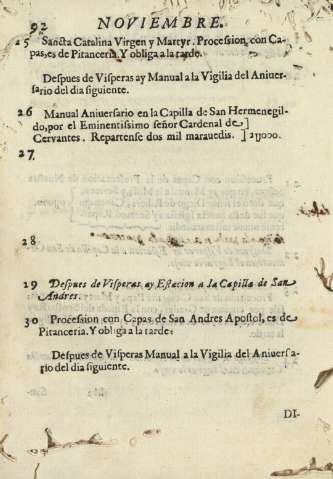 92 NOVIEMBRE.
25 Sancta Catalina Virgen y Martyr. Procession, con Ca-
pas, es de Pitanceria. Y obliga a la tarde.
Despues de Visperas ay Manual a la Vigilia del Aniver-
sario del dia siguiente.
26 Manual Aniuersario en la Capilla de San Hermenegil-
do, por el Eminentissimo señor Cardenal de
Cervantes. Repartense dos mil marauedis. ] 2y000.
27
28
29 Despues de Visperas, ay Estacion a la Capilla de San
Andres.
30 Procession con Capas de San Andres Apostol, es de
Pitanceria. Y obliga a la tarde:
Despues de Visperas Manual a la Vigilia del Aniuersa-
rio del dia siguiente.
DI-